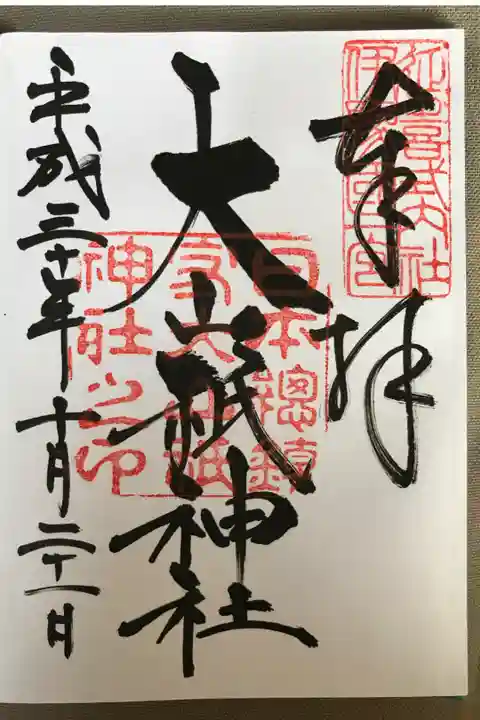 奉拝
延喜式内社
伊豫國一宮
大山祇神社
日本總鎮
守大山祇
神社之印
平成三十年十月二十一日